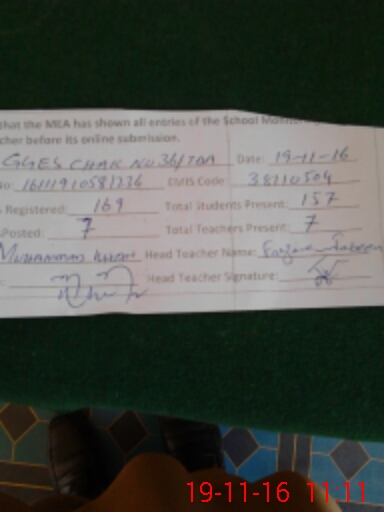 that the MEA has shown all entries of the School Monitoring
cher before its online submission.
GGES CHAK NO 36/10A Date: 19-11-16
No: 16111910581236 EMIS Code: 38110504
Registered: 169 Total Students Present: 157
Posted: 7 Total Teachers Present: 7
MUHAMMAD Head Teacher Name: Farzana
Head Teacher Signature:
19-11-16 11:11